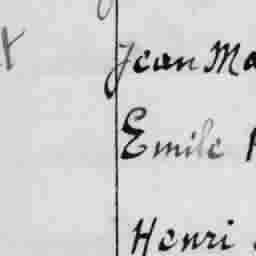 Jean Ma
Emile
Henri